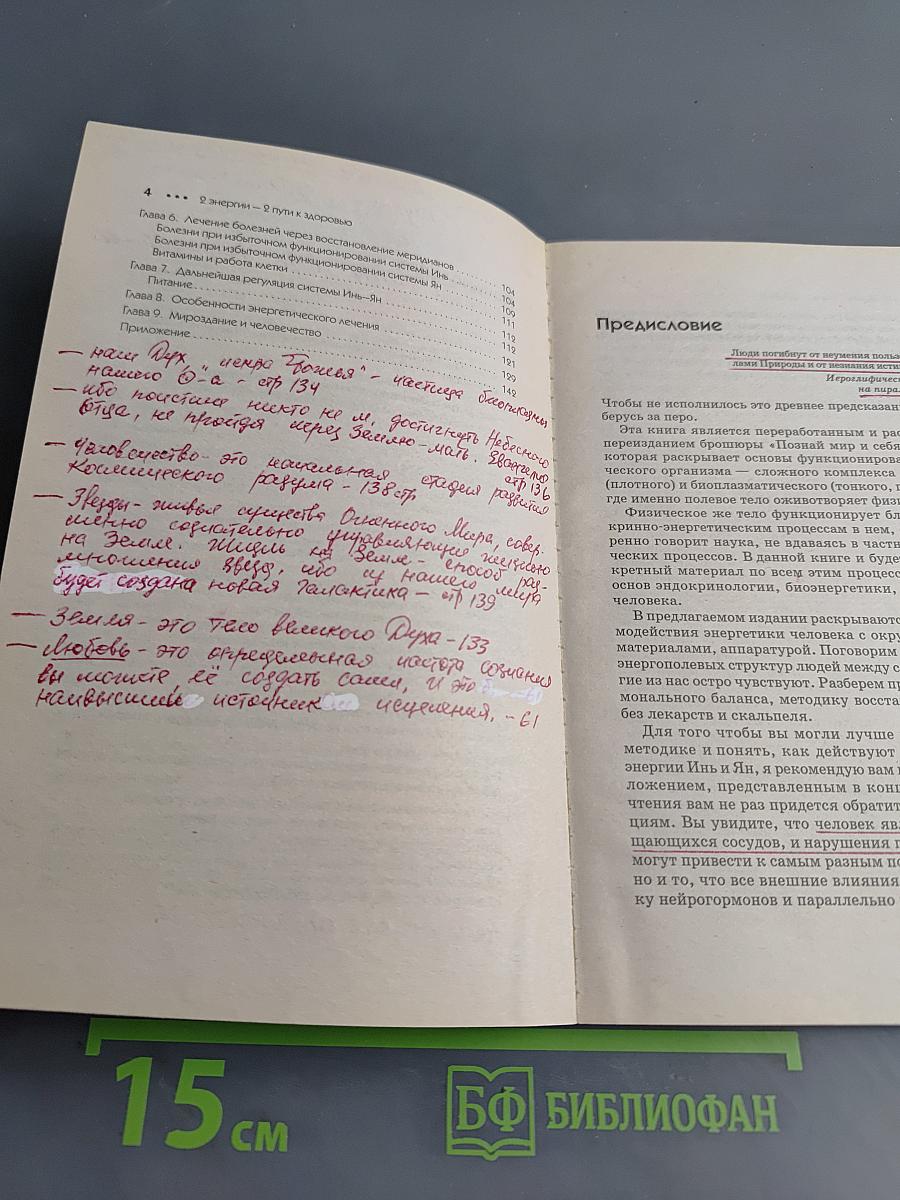 4 ••• 2 энергии — 2 пути к здоровью
Глава 6. Лечение болезней через восстановление меридианов 104
Болезни при избыточном функционировании системы Инь 104
Болезни при избыточном функционировании системы Ян 109
Витамины и работа клетки 111
Глава 7. Дальнейшая регуляция системы Инь—Ян 112
Питание 112
Глава 8. Особенности энергетического лечения 121
Глава 9. Мироздание и человечество 129
Приложение 142
— наш Дух "искра Божья" - частица биоплазмы
нашего - стр 134
— ибо поистине никто не м. достигнуть Небесного
Отца, не пройдя через Землю - мать. Евангелие
стр 136
— Человечество - это начальная стадия развития
Космического разума - 138 стр
— Звезды - живые существа Огненного Мира, совер-
шенно сознательно управляющие жизнью
на Земле. Жизнь на Земле - способ раз-
множения звезд, ибо из нашего мира
будет создана новая Галактика - стр 139
— Земля - это тело великого Духа - 133
— Любовь - это определенная частота сознания
вы можете её создать сами, и это
наивысший источник исцеления. - 61
Предисловие
Люди погибнут от неумения польз
лами Природы и от незнания исти
Иероглифичес
на пира
Чтобы не исполнилось это древнее предсказа
берусь за перо.
Эта книга является переработанным и рас
переизданием брошюры «Познай мир и себя
которая раскрывает основы функционирова
ческого организма — сложного комплекса
(плотного) и биоплазматического (тонкого, п
где именно полевое тело оживотворяет физи
Физическое же тело функционирует бл
кринно-энергетическим процессам в нем,
ренно говорит наука, не вдаваясь в частн
ческих процессов. В данной книге и буде
кретный материал по всем этим процесс
основ эндокринологии, биоэнергетики,
человека.
В предлагаемом издании раскрываютс
модействия энергетики человека с окру
материалами, аппаратурой. Поговорим
энергополевых структур людей между с
гие из нас остро чувствуют. Разберем пр
монального баланса, методику восста
без лекарств и скальпеля.
Для того чтобы вы могли лучше
методике и понять, как действуют
энергии Инь и Ян, я рекомендую вам
ложением, представленным в конц
чтения вам не раз придется обратит
циям. Вы увидите, что человек явл
щающихся сосудов, и нарушения
могут привести к самым разным по
но и то, что все внешние влияния
ку нейрогормонов и параллельно
15 см
БФ БИБЛИОФАН